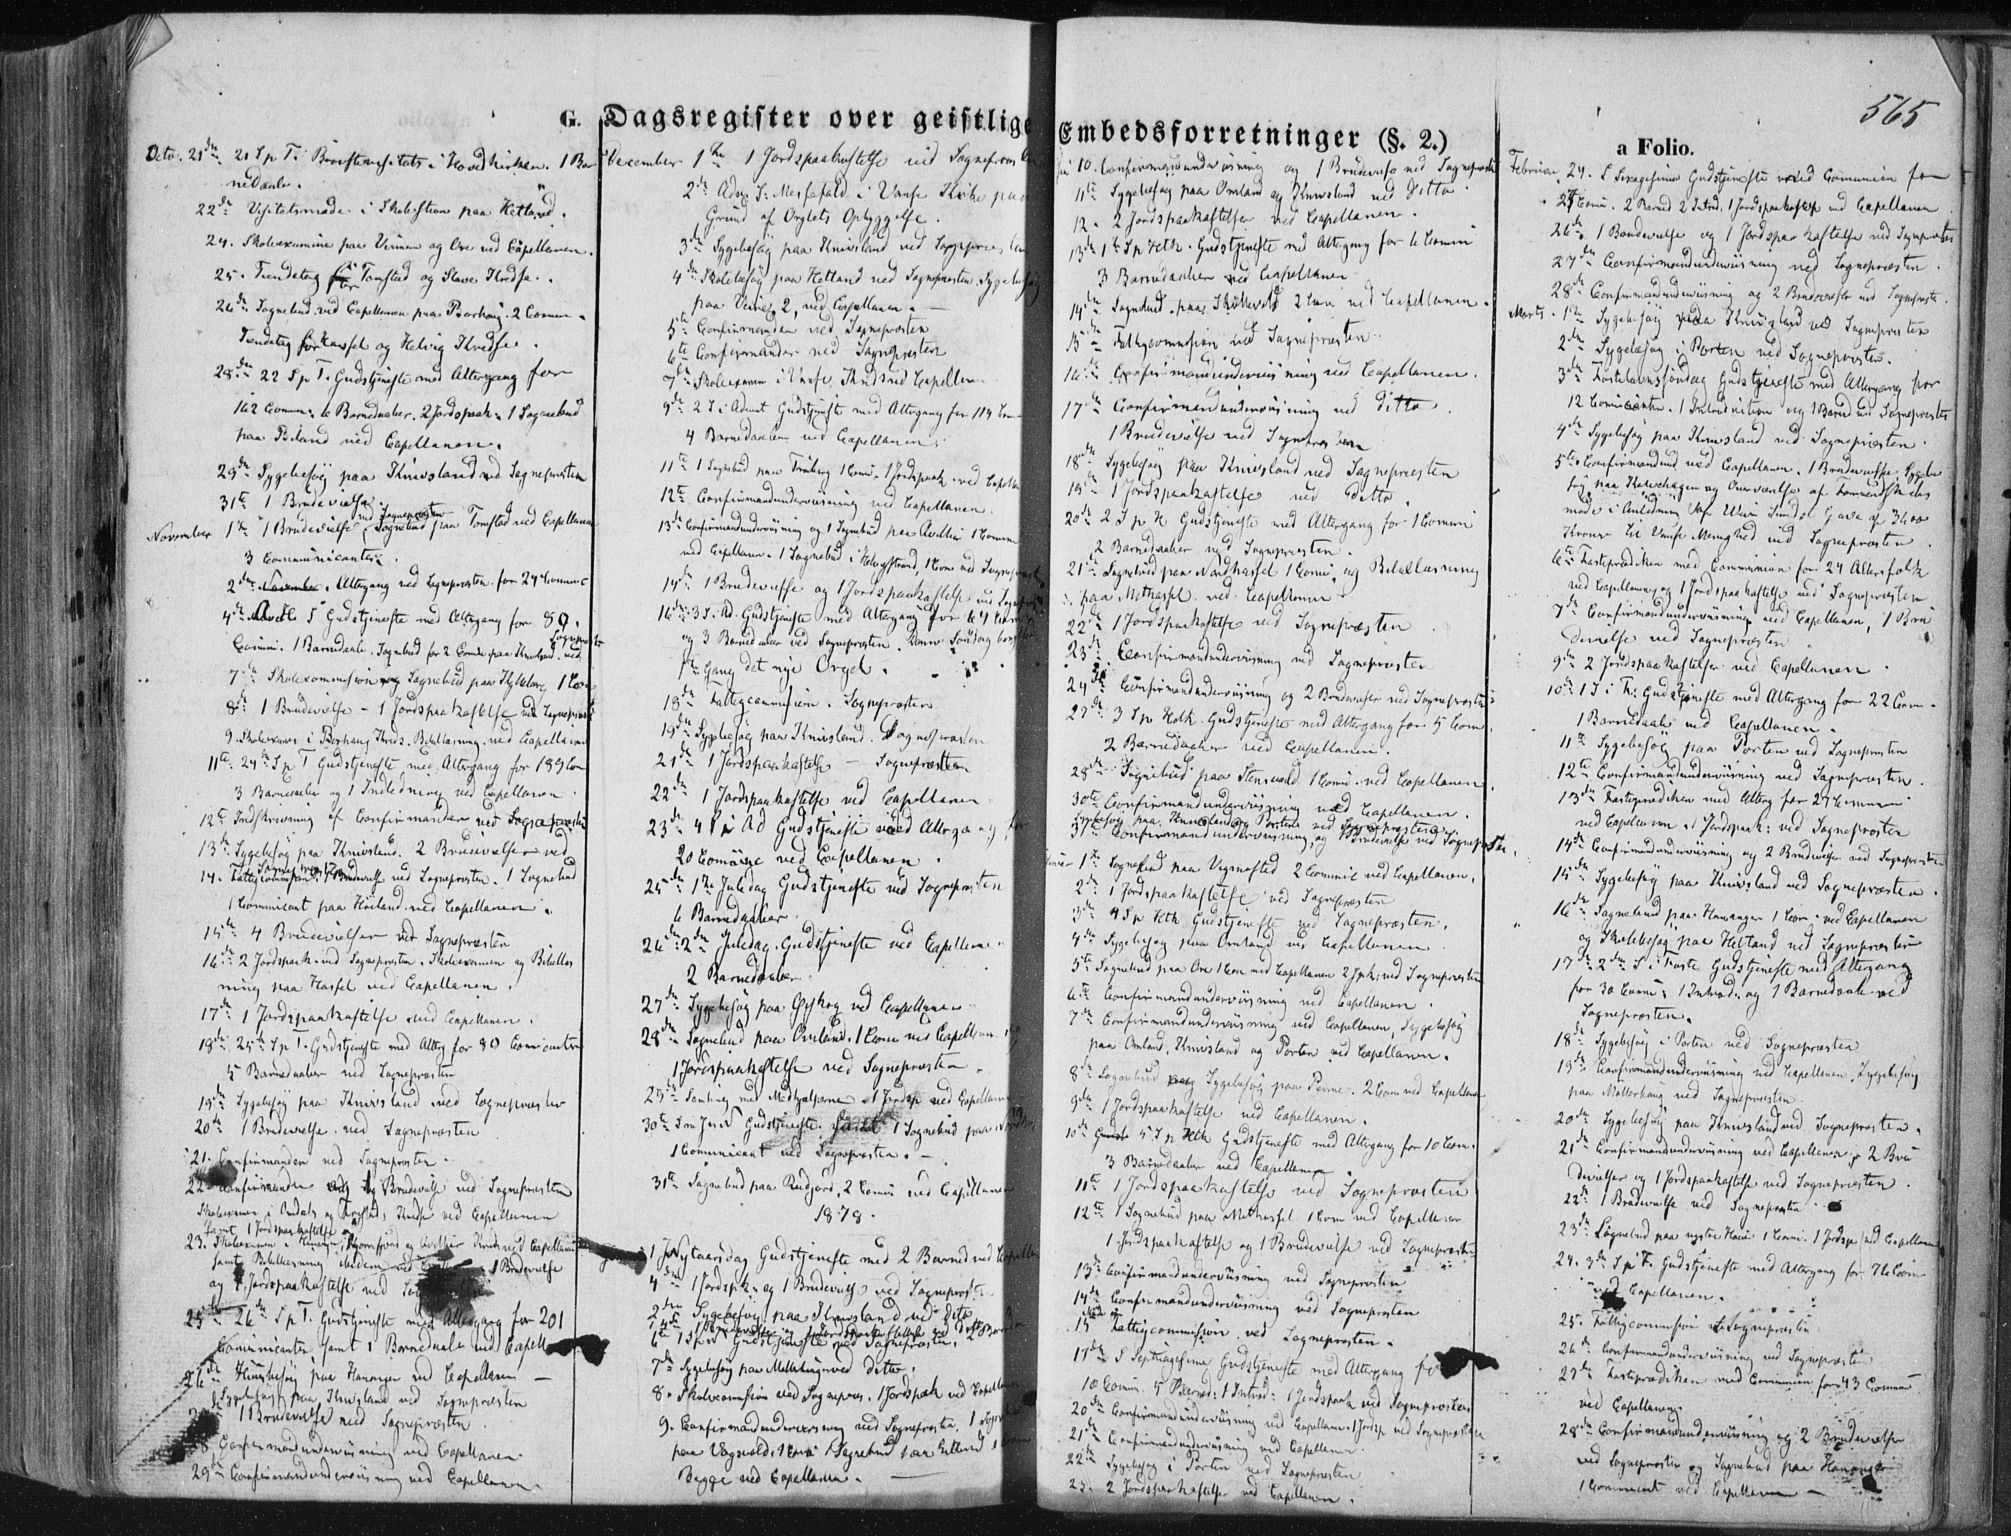 565
G. Dagsregister over geistlige Embedsforretninger (§. 2.)
a Folio.
Octo. 21de 21 S p T i Hovedkirken. 1 Bar
nedaab.
22de Visitatsmøde i Skolestuen paa Hetland.
24. Skoleexamina paa Vinnen og Ore ved Capellanen.
25. Tiendetag for Tomstad og Slave Kredse.
26de Sognebud ved Capellanen paa Borhaug. 2 Comm.
Tiendetag for Hassel og Helvig Kredse.
28de 22 S p T. Gudstjeneste med Altergang for
162 Comm. 6 Barnedaaber. 2 Jordspaak. 1 Sognebud
paa Biland ved Capellanen.
29de Sygebesøg paa Knivsland ved Sognepræsten
31te 1 Brudevielse.
November 1ste 1 Brudevielse ved Sognepræsten Sognebud paa Tomstad ved Capellanen
3 Communicanter.
2den Altergang ved Sognepræsten for 24 Comm
4de S Gudstjeneste ved Altergang for 89.
Commi. 1 Barnedaab. Sognebud for 2 Comm paa Knivsland ved Sognepræsten
7de Skolecommission og Sognebud paa 1 Com
8de 1 Brudevielse - 1 Jordspaakastelse ved Sognepræst
9. Skoleexamen i Borhaug Kreds. Bibellæsning. ved Capellanen
11te 24de S p T Gudstjeneste med Altergang for 189 Com
3 Barnedaaber og 1 Indledning ved Capellanen.
12te Indskrivning af Confirmander ved Sognepræsten
13de Sygebesøg paa Knivsland. 2 Brudevielser ved
Sognepræsten
14. Fattigcommission. 1 Brudevielse ved Sognepræsten. 1 Sognebud
1 Communicant paa Høiland ved Capellanen.
15de 4 Brudevielser ved Sognepræsten
16de 2 Jordspaak. ved Sognepræsten. Skoleexamen og Bibellæs
ning paa Hassel ved Capellanen.
17de 1 Jordspaakastelse ved Capellanen.
18de 25de S p T. Gudstjeneste med Alterg for 80 Comunicanter
5 Barnedaaber ved Sognepræsten
19de Sygebesøg paa Knivsland ved Sognepræsten
20de 1 Brudevielse ved Sognepræsten
21. Confirmander ved Sognepræsten.
22. Confirmander og Brudevielse ved Sognepræsten
Skoleexamen i Kredse ved Capellanen
samt 1 Jordspaakastelse
23. Skoleexamen i Kreds ved Capellanen
samt Bibellæsning 1 Brudevielse
og 4 Jordspaakastelse ved
25de 26de S p T. Gudstjeneste med Altergang for 201
Communicanter samt 1 Barnedaab ved Capellanen
26de Huusbesøg paa Hananger ved Capellanen
Sygebesøg paa Knivsland ved Sognepræsten
1 Brudevielse ved Sognepræsten.
28. Confirmandunderviisning ved Capellanen
29de Confirmandunderviisning ved Capellanen.
December 1ste 1 Jordspaakastelse ved Sognepræsten
2den Adv. S: Messefald i Vanse Kirke paa
Grund af Orglets Opbyggelse.
3de Sygebesøg paa Knivsland ved Sognepræsten
4de Skolebesøg paa Hetland ved Sognepræsten. Sygebesøg
paa 2, ved Capellanen.
5te Confirmander ved Sognepræsten
6te Confirmander ved Sognepræsten
7de Skoleexamen i Vanse Kreds ved Capellan
9de 2 S i Advent Gudstjeneste med Altergang for 114 Comm
4 Barnedaaber ved Capellanen.
11te 1 Sognebud paa 1 Comm. 1 Jordspaak. ved Capellan
12te Confirmandunderviisning ved Capellanen.
13de Confirmandunderviisning og 1 Sognebud paa 1 Comm
ved Capellanen. 1 Sognebud i Helvigstrand, 1 Com ved Sognepræsten
14de 1 Brudevielse og 1 Jordspaakastelse ved Sognepræsten
16de 3 S. Ad. Gudstjeneste med Altergang for 64 Comm
og 3 Barnedaaber ved Sognepræsten. Denne Søndag
1ste Gang det nye Orgel.
18de Fattigcommission. Sognepræsten
19de Sygebesøg paa Knivsland. Sognepræsten
21de 1 Jordspaakastelse - Sognepræsten
22de 1 Jordspaakastelse ved Capellanen
23de 4 S i Ad Gudstjeneste med Altergang for
20 Comm ved Capellanen.
25de 1ste Juledag Gudstjeneste ved Sognepræsten
6 Barnedaaber
26de 2den Juledag. Gudstjeneste ved Capellanen
2 Barnedaaber.
27de Sygebesøg paa ved Capellanen
28de Sognebud paa Omland. 1 Com ved Capellanen
1 Jordspaakastelse ved Sognepræsten.
29de Samling med Medhjelperne. 1 Jordsp ved Capellanen
30te Gudstjeneste samt 1 Sognebud paa
1 Comunicant ved Sognepræsten.
31te Sognebud paa 2 Comm ved Capellanen
1878.
1 Nytaarsdag Gudstjeneste med 2 Barned ved Capellan
4de 1 Jordspk. og 1 Brudevielse ved Sognepræsten
Sygebesøg paa Knivsland ved dito
6te Gudstjeneste ved Sognepræsten.
7de Sygebesøg paa ved ditto.
8. Skolecommission ved Sognepræst. 1 Jordspaak ved Capellan
9. Confirmandunderviisning ved Sognepræsten. 1 Sogneb
paa Vagsvold. 1 Comm 1 Sognebud paa 1 Com
Begge ved Capellanen.
10. Confirmandunderviisning og 1 Brudevielse ved Sognepræsten
11te Sygebesøg paa Omland og Knivsland ved Ditto
12. 2 Jordspaakastelser ved Capellanen.
13de 1ste S p Hetk. Gudstjeneste med Altergang for 6 Commi
3 Barnedaaber ved Capellanen
14de Sognebud paa Skollevold 2 Com ved Capellanen.
15de Fattigcommission ved Sognepræsten
16de Confirmandunderviisning ved Capellanen.
17de Confirmandunderviisning ved Ditto.
1 Brudevielse ved Sognepræsten
18de Sygebesøg paa Knivsland ved Sognepræsten
19de 1 Jordspaakastelse ved Ditto
20de 2 S p H Gudstjeneste med Altergang for 1 Commi
2 Barnedaaber ved Sognepræsten.
21de Sognebud paa Nordhassel 1 Comi, og Bibellæsning
paa Mithassel ved Capellanen
22de 1 Jordspaakastelse ved Sognepræsten
23de Confirmandunderviisning ved Sognepræsten
24de Confirmandunderviisning og 2 Brudevielser ved Sognepræsten
27de 3 S p Hetk. Gudstjeneste med Altergang for 5 Comm
2 Barnedaaber ved Capellanen.
28de Sognebud paa Stensvold 1 Comi. ved Capellanen.
30te Confirmandunderviisning ved Capellanen.
Sygebesøg paa Knivsland og Porten ved Sognepræsten
31te Confirmandunderviisning, og 1 Brudevielse ved Sognepræsten.
1ste Sognebud paa Vigmostad 2 Commic ved Capellanen.
2den 1 Jordspaakastelse ved Sognepræsten
3de 4 S p Hetk Gudstjeneste ved Sognepræsten.
4de Sygebesøg paa Omland ved Capellanen
5te Sognebud paa Ore 1 Com ved Capellanen 2 Jspk. ved Sognepræsten
6te Confirmandunderviisning ved Capellanen.
7de Confirmandunderviisning ved Capellanen, Sygebesøg
paa Omland, Knivsland og Porten ved Capellanen.
8de Sognebud og Sygebesøg paa Penne. 2 Com ved Capellanen
9de 1 Jordspaakastelse ved Capellanen.
10de 5 S p Hetk Gudstjeneste med Altergang for 10 Com.
3 Barnedaaber ved Capellanen
11te 1 Jordspaakastelse ved Sognepræsten
12te 1 Sognebud paa Mithassel 1 Com ved Capellanen
1 Jordspaakastelse og 1 Brudevielse ved Sognepræsten
13de Confirmandunderviisning ved Sognepræsten
14de Confirmandunderviisning ved Sognepræsten
15de Fattigcommission ved Sognepræsten.
17de S Septuagesima Gudstjeneste med Altergang for
10 Comm. 5 Barned: 1 Introd: 1 Jordspaak ved Sognepræsten
20de Confirmandunderviisning ved Capellanen. 1 Jordsp ved Sognepræsten
21de Confirmandunderviisning ved Capellanen.
22de Sygebesøg i Porten ved Sognepræsten
23. 2 Jordspaakastelser ved Capellanen.
Februar. 24. S Sexagesima Gudstjeneste med Comunion for
27 Comm. 2 Barned 2 Introd. 1 Jordspaakastelse ved Capellanen
26de 1 Brudevielse og 1 Jordspaakastelse ved Sognepræsten
27de Confirmandunderviisning ved Sognepræsten.
28de Confirmandunderviisning og 2 Brudevielser ved Sognepræsten.
Marts. 1ste Sygebesøg paa Knivsland ved Sognepræsten
2den Sygebesøg i Porten ved Sognepræsten.
3de Fastelavnssøndag Gudstjeneste med Altergang for
12 Comunicanter. 1 Introduction og 1 Barned ved Sognepræsten
4de Sygebesøg paa Knivsland ved Sognepræsten.
5te Confirmandund ved Capellanen. 1 Brudevielse, Sygebe
søg paa og Overværelse af Formandskabs
møde i Anledning af Gave af 3600
Kroner til Vanse Menighed ved Sognepræsten.
6te Fasteprædiken med Communion for 24 Altersfolk
ved Capellanen og 1 Jordspaakastelse ved Sognepræsten
7de Confirmandunderviisning ved Capellanen, 1 Bru
devielse ved Sognepræsten
9de 2 Jordspaakastelser ved Capellanen.
10de 1 S i F: Gudstjeneste med Altergang for 22 Com.
1 Barnedaab ved Capellanen.
11te Sygebesøg paa Porten ved Sognepræsten
12te Confirmandunderviisning ved Sognepræsten.
13de Fasteprædiken med Alterg for 27 Commun
ved Capellanen. 1 Jordspaak: ved Sognepræsten
14de Confirmandunderviisning og 2 Brudevielser ved Sognepræsten
15de Sygebesøg paa Knivsland ved Sognepræsten.
16de Sognebud paa Hananger 1 Com. ved Capellanen
og Skolebesøg paa Hetland ved Sognepræsten
17de 2den S i Faste Gudstjeneste med Altergang
for 30 Comm: 1 Introd: og 1 Barnedaab ved
Sognepræsten.
18de Sygebesøg i Porten ved Sognepræsten
19de Confirmandunderviisning ved Capellanen. Sygebesøg
paa Møllerhaug ved Sognepræsten.
20de Sygebesøg paa Knivsland ved Sognepræsten.
21de Confirmandunderviisning ved Capellanen, 2 Bru
devielser og 1 Jordspaakastelse ved Sognepræsten.
22de 1 Brudevielse ved Sognepræsten
23de Sognebud paa 1 Comi. 1 Jordsp ved Capellanen
24. 3de S i F. Gudstjeneste med Altergang for Com
ved Capellanen.
25. Fattigcommission Sognepræsten
26de Confirmandunderviisning ved Sognepræsten
27de Fasteprædiken med Comunion for 43 Comm
ved Capellanen.
28de Confirmandunderviisning og 2 Brudevielser
ved Sognepræsten og Sognebud paa Hananger
1 Communicant ved Capellanen